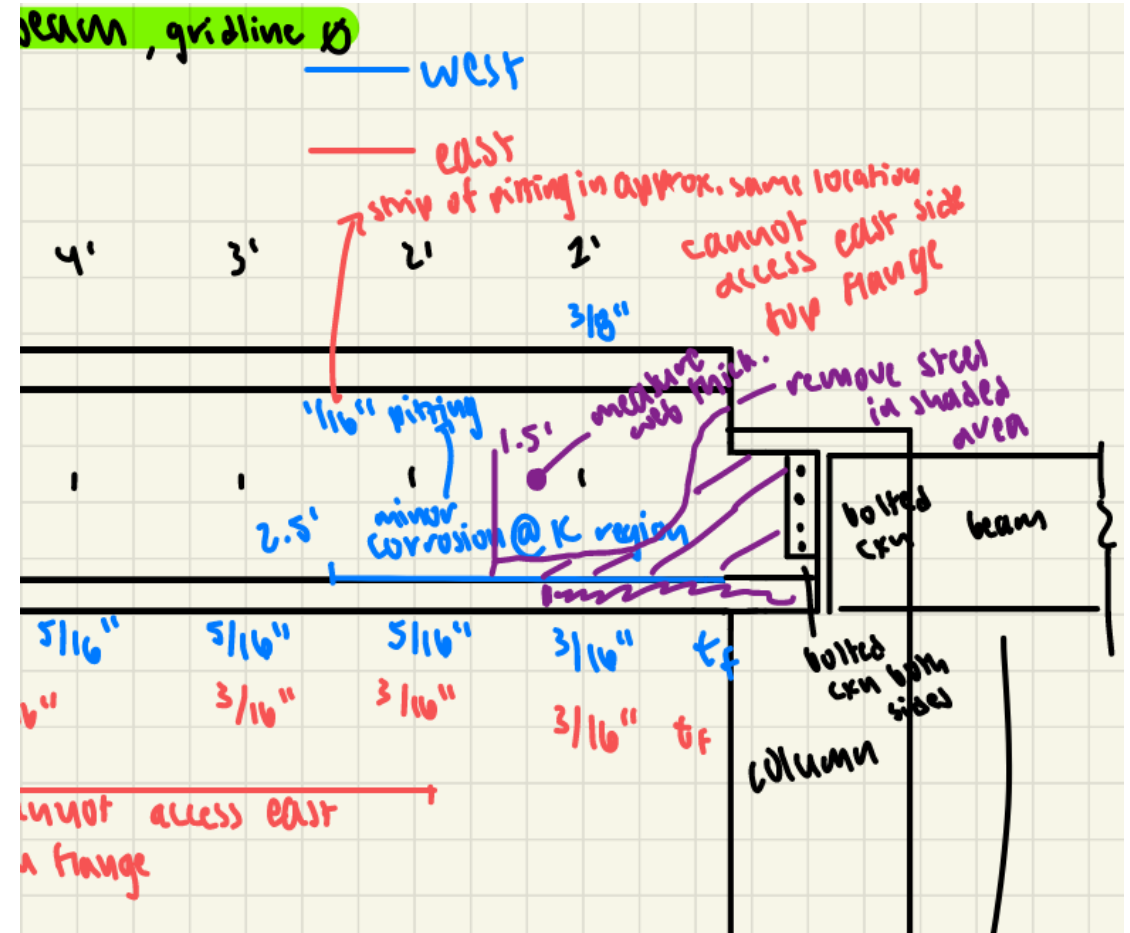 beam, gridline
west
east
strip of pitting in approx. same location
cannot
access east side
top flange
4'
3'
2'
1'
3/8"
measure
web thick.
remove steel
in shaded
area
1/16" pitting
1.5'
minor
corrosion @ K region
2.5'
bolted
cxn
beam
5/16"
5/16"
5/16"
3/16"
tf
3/16"
3/16"
3/16"
tf
bolted
cxn both
sides
column
cannot access east
flange